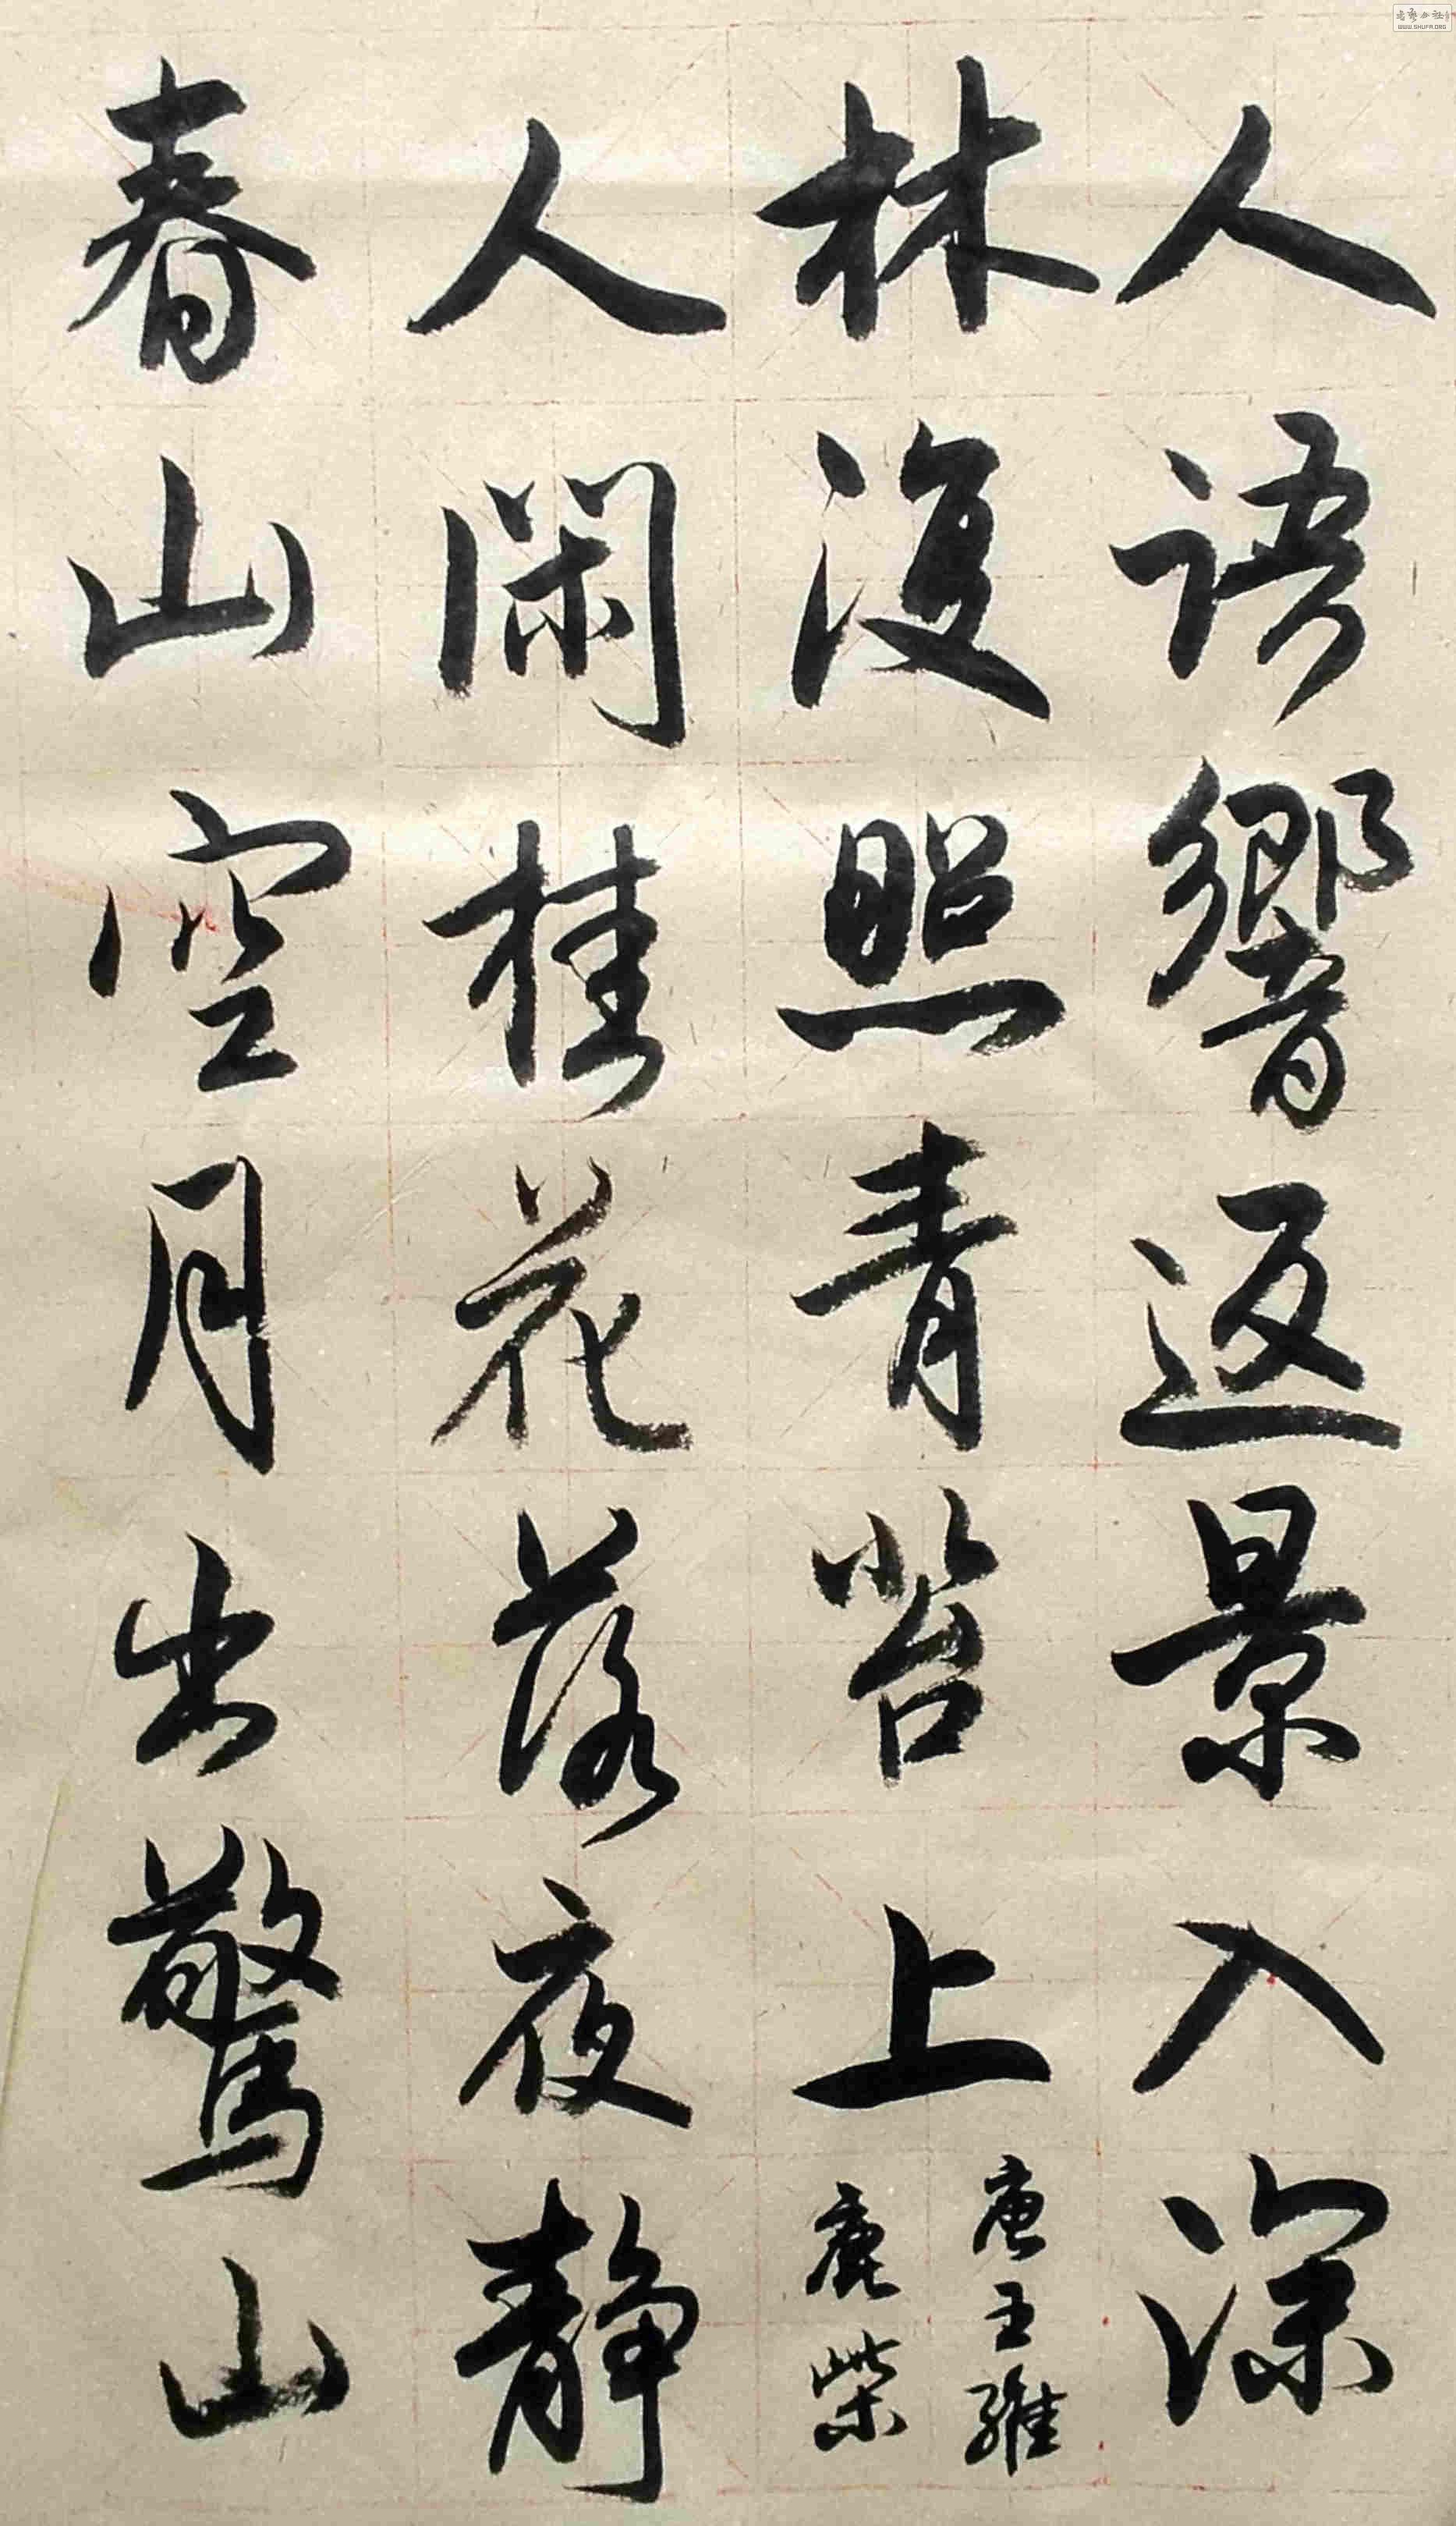 人語響返景入深
林復照青苔上
唐王維
鹿柴
人閑桂花落夜靜
春山空月出驚山
WWW.SHUFA.ORG